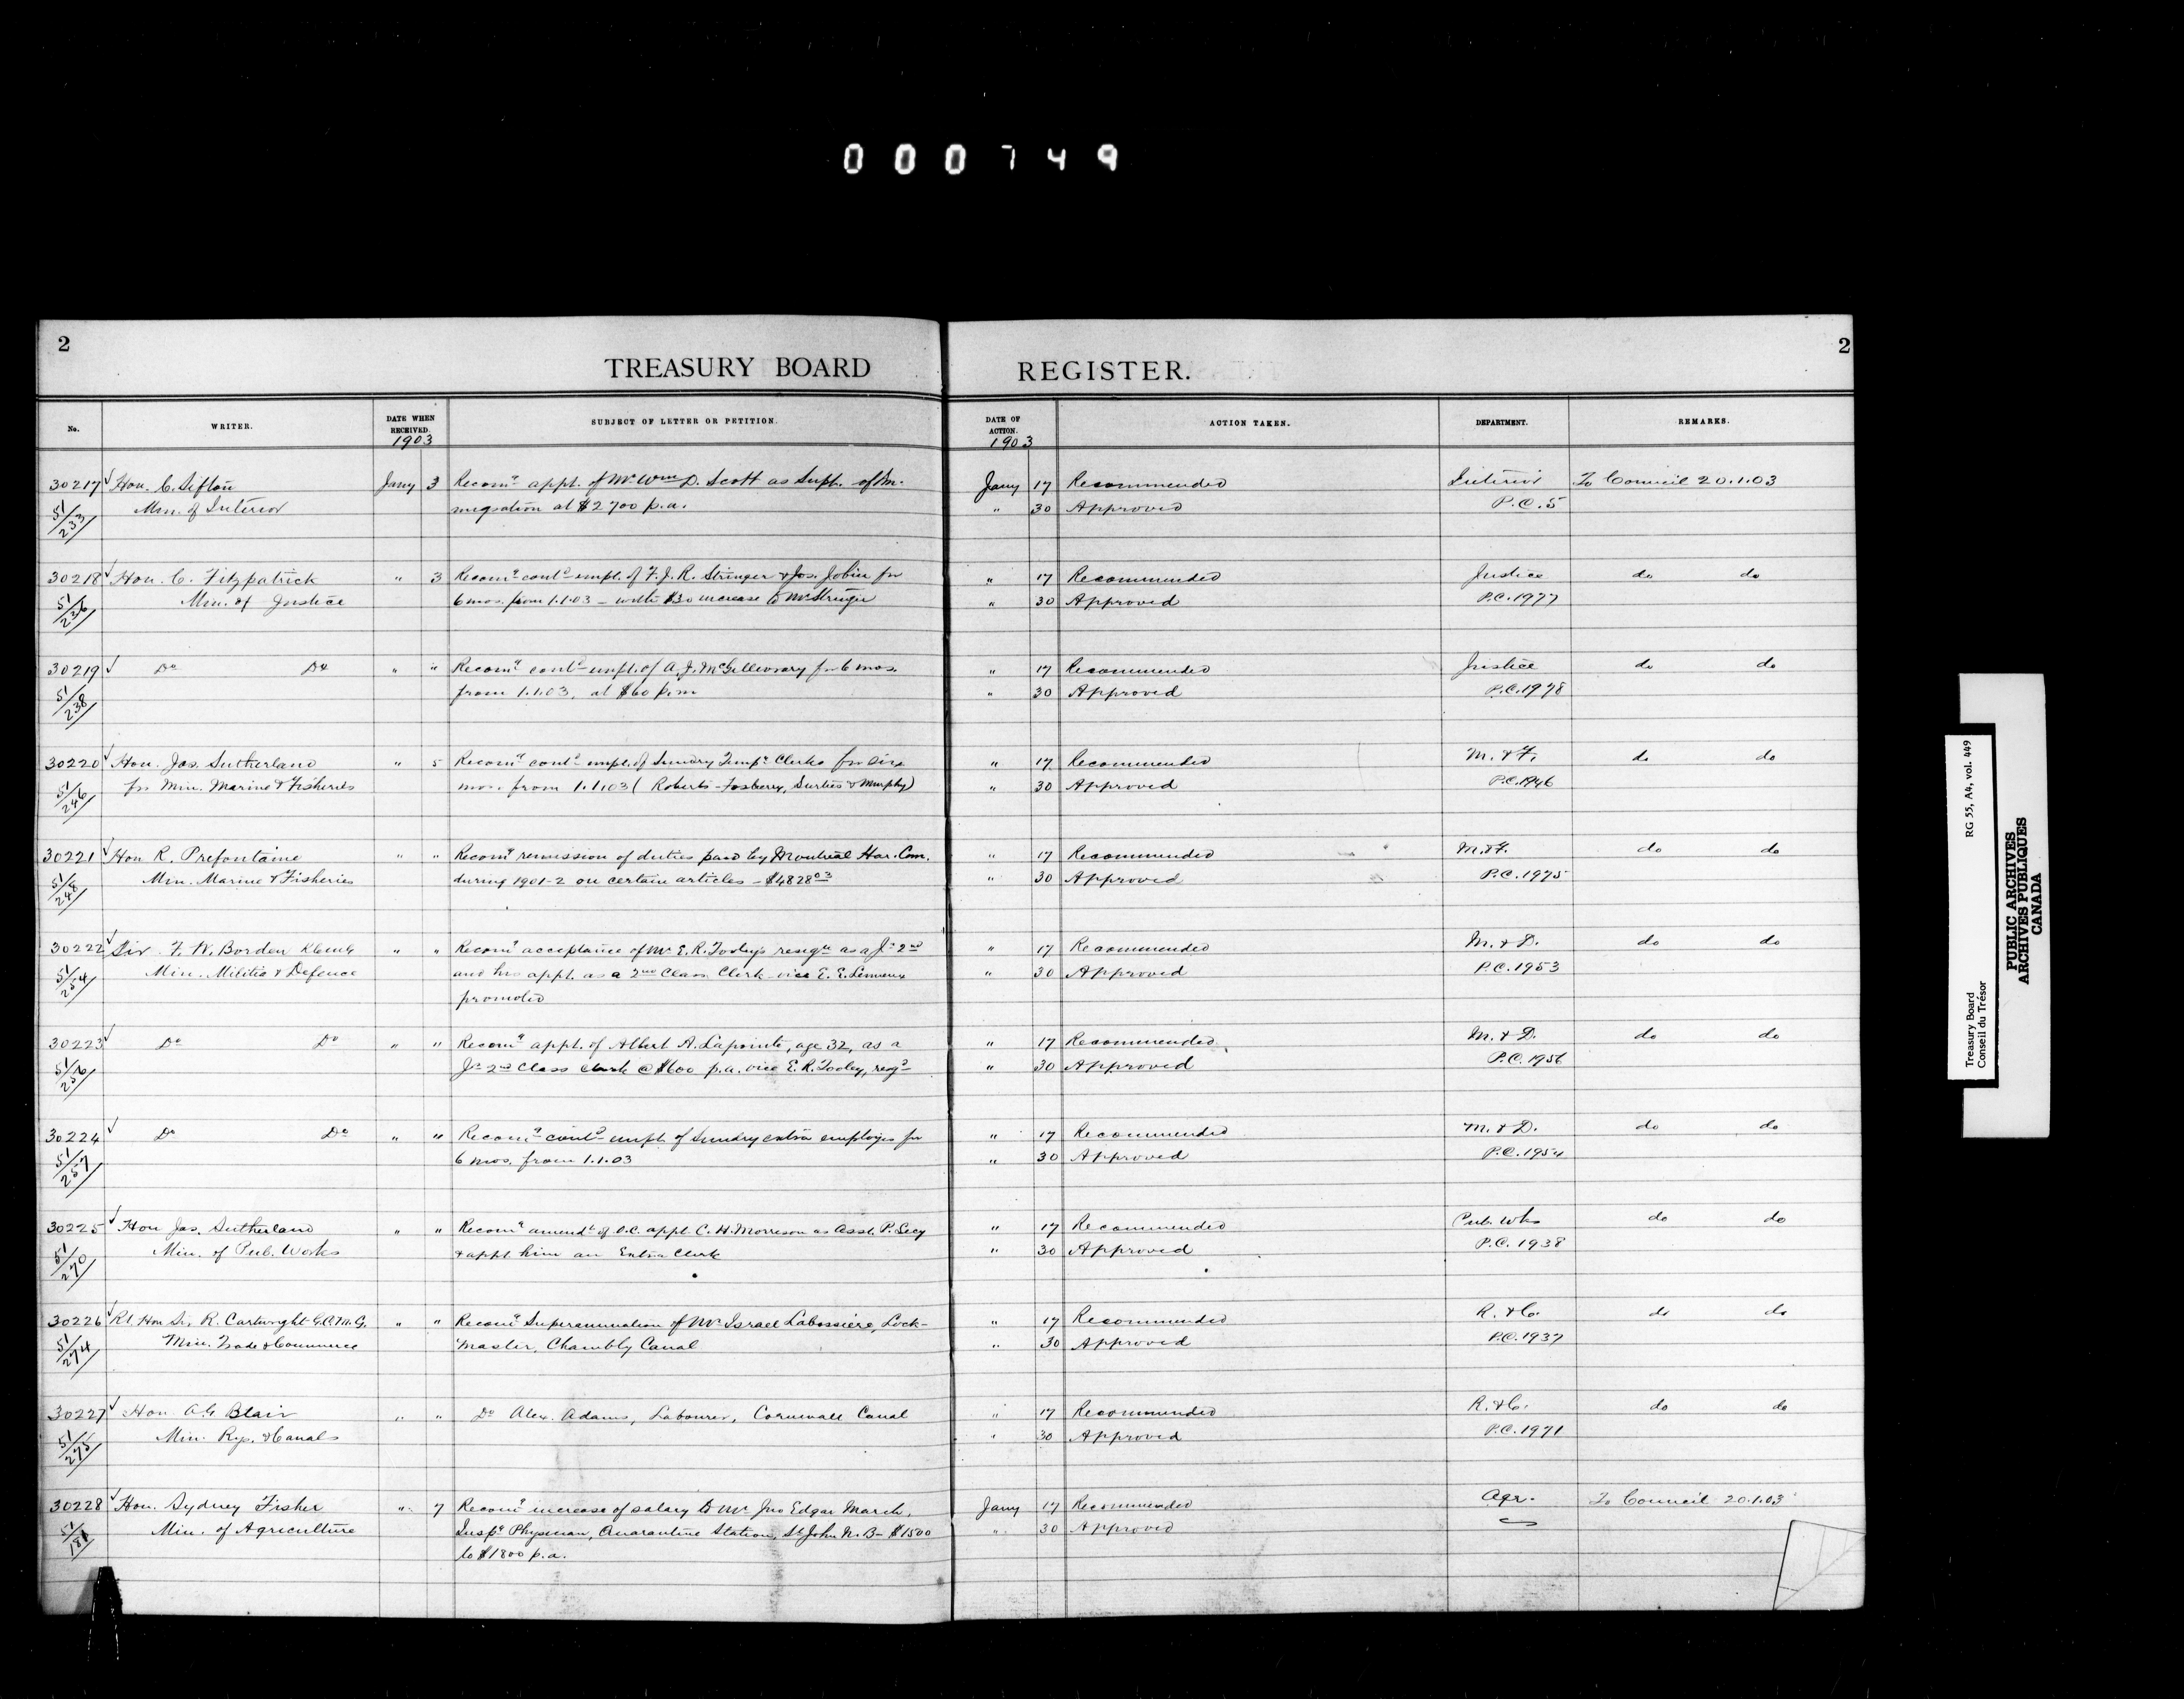 000749
2
TREASURY BOARD REGISTER.
2
No. WRITER. DATE WHEN RECEIVED. 1903 SUBJECT OF LETTER OR PETITION. DATE OF ACTION. 1903 ACTION TAKEN. DEPARTMENT. REMARKS.
30217 Hon. C. Sifton Jany 3 Recomg appt. of Mr Wm D. Scott as Supt. of Im- Jany 17 Recommended Interior To Council 20.1.03
51/233 Min. of Interior migration at $2700 p.a. " 30 Approved P.C. 5
30218 Hon. C. Fitzpatrick " 3 Recomg contd empt. of F. J. R. Stringer & Jos. Jobin for " 17 Recommended Justice do do
51/236 Min. of Justice 6 mos. from 1.1.03 - with $30 increase to Mr Stringer " 30 Approved P.C. 1977
30219 Do Do " " Recomg contd empt. of A. J. McGillivray for 6 mos. " 17 Recommended Justice do do
51/238 from 1.1.03, at $60 p.m " 30 Approved P.C. 1978
30220 Hon. Jas. Sutherland " 5 Recomg contd empt. of Sundry Tempy Clerks for six " 17 Recommended M. & F. do do
51/246 for Min. Marine & Fisheries mos. from 1.1.03 ( Roberts - Fosberry, Surtees & Murphy) " 30 Approved P.C. 1946
30221 Hon R. Prefontaine " " Recomg remission of duties paid by Montreal Har. Com. " 17 Recommended M. & F. do do
51/248 Min. Marine & Fisheries during 1901-2 on certain articles - $4828.03 " 30 Approved P.C. 1975
30222 Sir F. W. Borden KCMG " " Recomg acceptance of Mr E. R. Tooley's resign as a Jr 2nd " 17 Recommended M. & D. do do
51/254 Min. Militia & Defence and his appt. as a 2nd Class Clerk vice E. E. Lemieux " 30 Approved P.C. 1953
promoted
30223 Do Do " " Recomg appt. of Albert A. Lapointe, age 32, as a " 17 Recommended. M. & D. do do
51/256 Jr 2nd Class Clerk @ $600 p.a. vice E. R. Tooley, resgd " 30 Approved P.C. 1956
30224 Do Do " " Recomg contd empt. of Sundry extra employes for " 17 Recommended M. & D. do do
51/257 6 mos. from 1.1.03 " 30 Approved P.C. 1954
30225 Hon Jas. Sutherland " " Recomg amendt of O.C. appt C. H. Morrison as Asst. P. Secy " 17 Recommended Pub. Wks do do
51/270 Min. of Pub. Works & appt him an Extra Clerk " 30 Approved P.C. 1938
30226 Rt. Hon Sir R. Cartwright G.C.M.G. " " Recomg Superannuation of Mr Israel Labossière, Lock- " 17 Recommended R. & C. do do
51/274 Min. Trade & Commerce master, Chambly Canal " 30 Approved P.C. 1937
30227 Hon A G Blair " " Do Alex. Adams, Labourer, Cornwall Canal " 17 Recommended R. & C. do do
51/275 Min. Rys. & Canals " 30 Approved P.C. 1971
30228 Hon. Sydney Fisher " 7 Recomg increase of salary to Mr Jno Edgar March, Jany 17 Recommended Agr. To Council 20.1.03
51/181 Min. of Agriculture Inspg Physician, Quarantine Station, St John N.B - $1500 " 30 Approved
to $1800 p.a.
Treasury Board RG 55, A4, vol. 449
Conseil du Trésor
PUBLIC ARCHIVES
ARCHIVES PUBLIQUES
CANADA